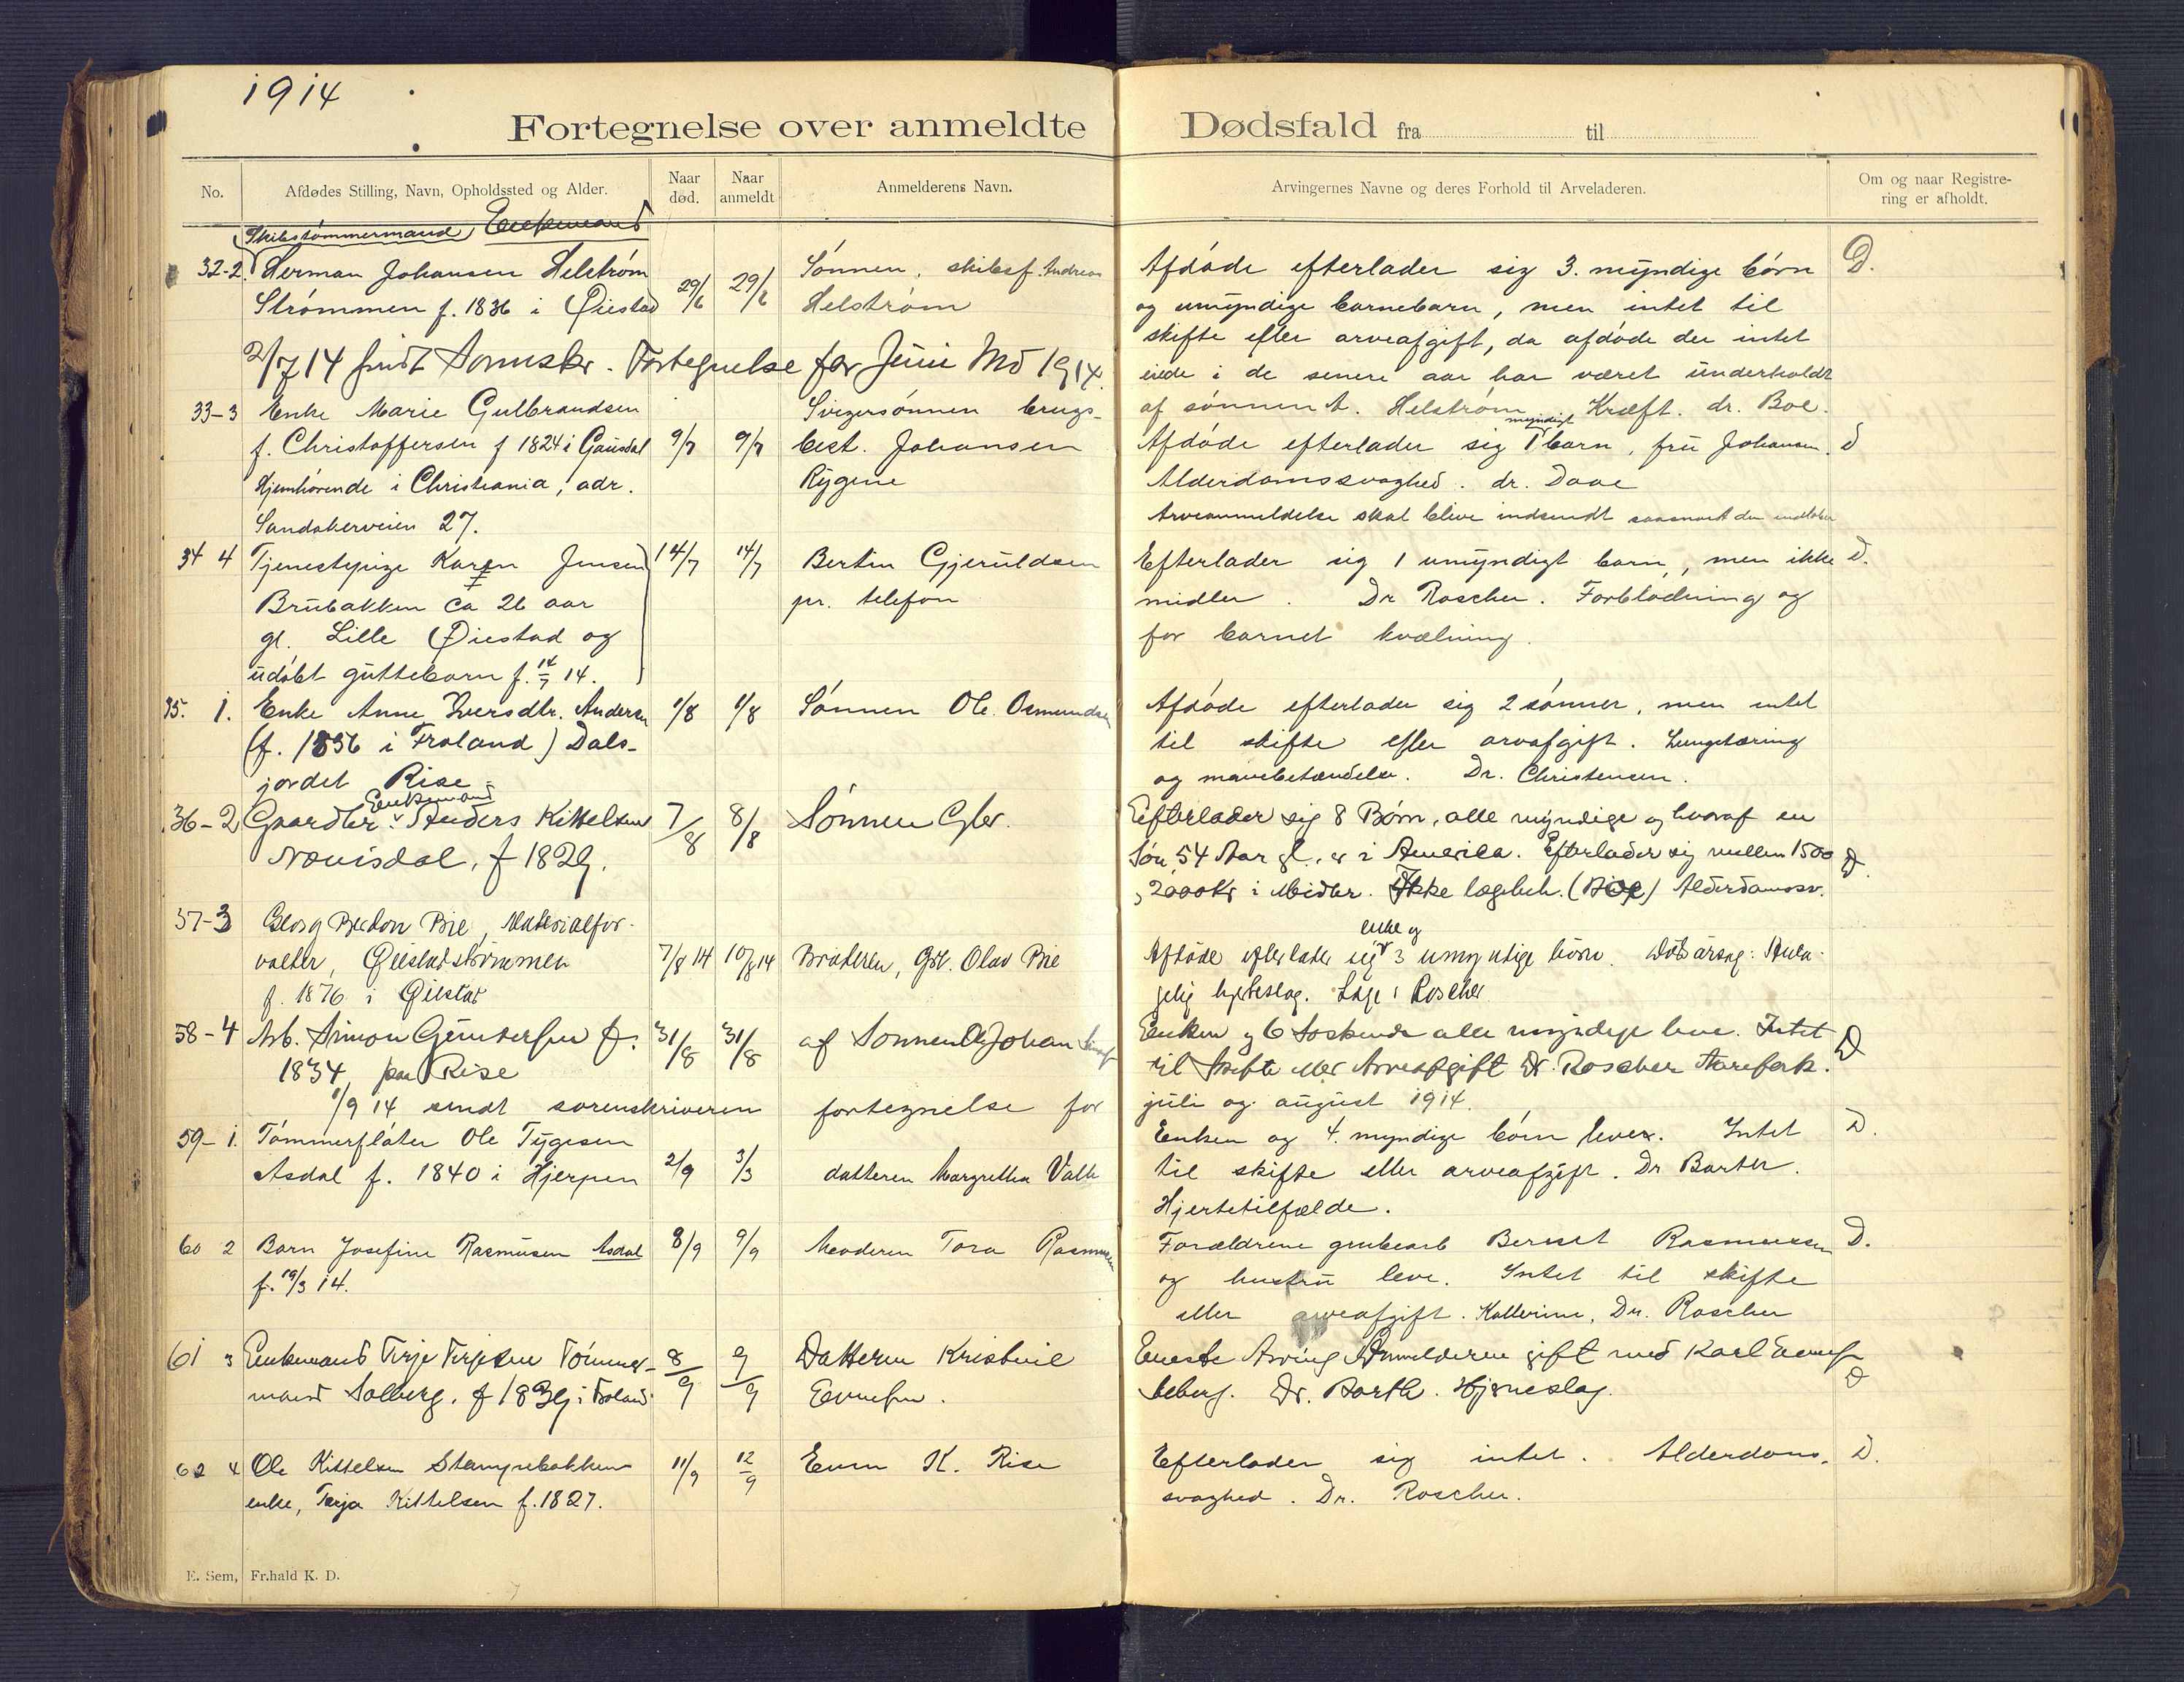 1914
Fortegnelse over anmeldte Dødsfald fra til
No.
Afdødes Stilling, Navn, Opholdssted og Alder.
Naar død.
Naar anmeldt
Anmelderens Navn.
Arvingernes Navne og deres Forhold til Arveladeren.
Om og naar Registrering er afholdt.
Skibstømmermand, Enkemand
32-2. Herman Johansen Helstrøm
Strømmen f. 1836 i Øiestad
29/6 29/6
Sønnen, skibsf. Andreas
Helstrøm
Afdøde efterlader sig 3. myndige børn
og umyndige barnebarn, men intet til
skifte eller arveafgift, da afdøde der intet
eiede i de senere aar har været underholdt
af sønnen A. Helstrøm. Kræft. dr. Boe.
D.
2/7 14 sendt Sornskr. Fortegnelse for Juni Md 1914.
33-3 Enke Marie Gulbrandsen
f. Christoffersen f 1824 i Gausdal
Hjemhørende i Christiania, adr.
Sandakerveien 27.
9/7 9/7
Svigersønnen brugs-
best. Johansen
Rygene
myndigt
Afdøde efterlader sig 1 barn, fru Johansen.
Alderdomssvaghed. dr. Daae
Arveanmeldelse skal blive indsendt saasnart den
D
34 4 Tjenestepige Karen Jensen
Brubakken ca 26 aar
gl. Lille Øiestad og
udøbt guttebarn f. 14/7 14.
14/7 14/7
Bertin Gjeruldsen
pr. telefon
Efterlader sig 1 umyndigt barn, men ikke
midler. Dr Roscher. Forblødning og
for barnet kvælning.
D.
35. 1. Enke Anne Iversdtr. Andersen
(f. 1836 i Froland) Dals-
jordet Rise
1/8 1/8
Sønnen Ole Osmundsen
Afdøde efterlader sig 2 sønner, men intet
til skifte eller arvafgift. Lungetæring
og mavebetændelse. Dr. Christensen.
Enkemand
36-2 Gaardbr. Anders Kittelsen
Næuisdal, f 1829.
7/8 8/8
Sønnen
Efterlader sig 8 Børn, alle myndige og hvoraf en
Søn 54 Aar gl. er i Amerika. Efterlader sig mellem 1500
, 2000 Kr i Midler. Ikke lægebeh. (Boe) Alderdomssv.
D
37-3 Georg Bie, Materialfor-
valter, Øiestadstrømmen
f. 1876 i Øiestad
7/8 14 10/8 14
Broderen, Olav Bie
enke og
Afdøde efterlader sig 3 umyndige børn. Dødsårsag:
hjerteslag. Læge: Roscher
58-4 Arb. Simon Gundersen f.
1834 paa Rise
31/8 31/8
af Sønnen Ole Johan
Enken og 6 Søskende alle myndige leve. Intet
til Skifte eller Arveafgift Dr. Roscher Aarefork.
D
1/9 14 sendt sorenskriveren fortegnelse for juli og august 1914.
59-1. Tømmerfløter Ole Tygesen
Asdal f. 1840 i Hjerpen
2/9 3/3
datteren Margrethe
Enken og 4. myndige børn lever. Intet
til skifte eller arveafgift. Dr Barter.
Hjertetilfælde.
D.
60 2 Barn Josefine Rasmusen Asdal
f. 19/3 14.
8/9 9/9
Moderen Tora Rasmusen
Forældrene grubearb Berent Rasmussen
og hustru leve. Intet til skifte
eller arveafgift. Kollerine, Dr. Roscher
D.
61 3 Enkemand Terje Terjesen Tømmer-
mand Solberg, f 1839 i Froland
8/9 9/9
Datteren Kristine
Evensen.
Eneste Arving Anmelderen gift med Karl Evensen
Aeberg. Dr. Barth. Hjerneslag.
D
62 4 Ole Kittelsen Stampebakken
enke, Terja Kittelsen f. 1827.
11/9 12/9
Even K. Rise
Efterlader sig intet. Alderdoms.
svaghed. Dr. Roscher.
D.
E. Sem, Fr.hald K. D.